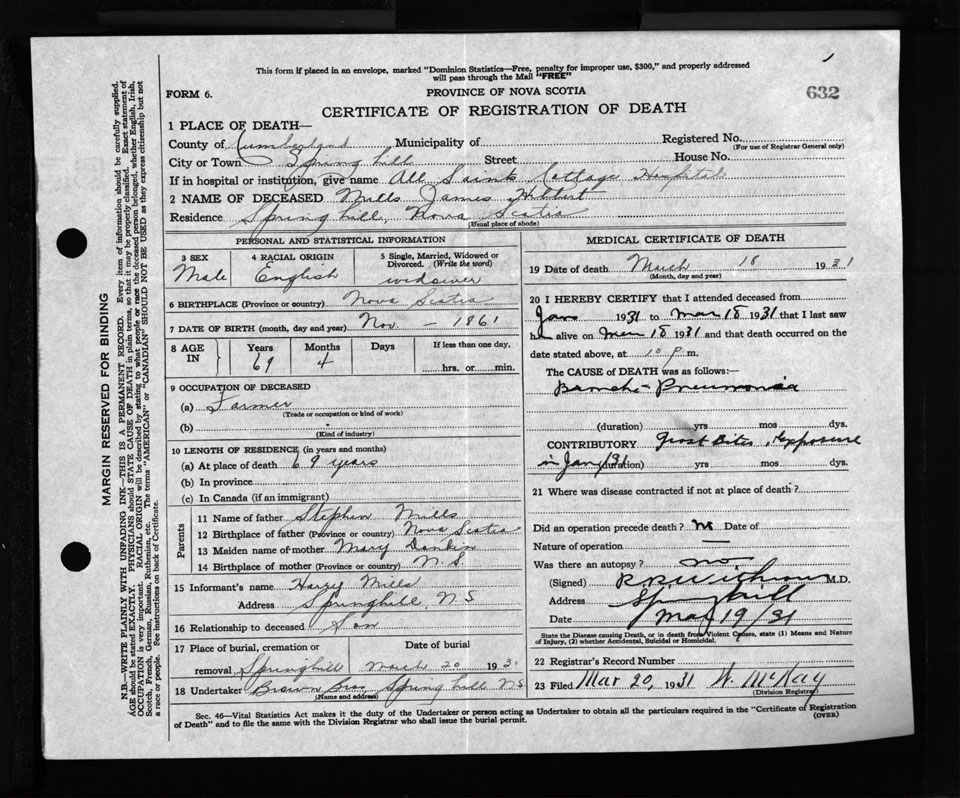 This form if placed in an envelope, marked "Dominion Statistics—Free, penalty for improper use, $300," and properly addressed
will pass through the Mail "FREE"
FORM 6.
PROVINCE OF NOVA SCOTIA
632
CERTIFICATE OF REGISTRATION OF DEATH
1 PLACE OF DEATH—
County of Cumberland Municipality of Registered No.
(For use of Registrar General only)
City or Town Springhill Street House No.
If in hospital or institution, give name All Saints Cottage Hospital
2 NAME OF DECEASED Mills James Hibbert
Residence Springhill, Nova Scotia
(Usual place of abode)
PERSONAL AND STATISTICAL INFORMATION
3 SEX 4 RACIAL ORIGIN 5 Single, Married, Widowed or
Divorced. (Write the word)
Male English widower
6 BIRTHPLACE (Province or country) Nova Scotia
7 DATE OF BIRTH (month, day and year) Nov. — 1861
8 AGE IN Years Months Days If less than one day.
69 4 hrs. or min.
9 OCCUPATION OF DECEASED
(a) Farmer
(Trade or occupation or kind of work)
(b)
(Kind of industry)
10 LENGTH OF RESIDENCE (in years and months)
(a) At place of death 69 years
(b) In province
(c) In Canada (if an immigrant)
Parents
11 Name of father Stephen Mills
12 Birthplace of father (Province or country) Nova Scotia
13 Maiden name of mother Mary
14 Birthplace of mother (Province or country) N.S.
15 Informant's name Harry Mills
Address Springhill, N S
16 Relationship to deceased Son
17 Place of burial, cremation or Date of burial
removal Springhill March 20 1931
18 Undertaker Brown Bros, Springhill N S
(Name and address)
MEDICAL CERTIFICATE OF DEATH
19 Date of death March 18 1931
(Month, day and year)
20 I HEREBY CERTIFY that I attended deceased from
Jan 1931 to Mar 18 1931 that I last saw
h alive on Mar 18 1931 and that death occurred on the
date stated above, at 10 P m.
The CAUSE of DEATH was as follows:—
Broncho-Pneumonia
(duration) yrs mos dys.
CONTRIBUTORY Frost Bites, exposure
in Jan/31 (duration) yrs mos dys.
21 Where was disease contracted if not at place of death?
Did an operation precede death? no Date of
Nature of operation —
Was there an autopsy? no
(Signed) M.D.
Address Springhill
Date Mar 19/31
State the Disease causing Death, or in death from Violent Causes, state (1) Means and Nature
of Injury, (2) whether Accidental, Suicidal or Homicidal.
22 Registrar's Record Number
23 Filed Mar 20, 1931 W. McKay
(Division Registrar)
Sec. 46—Vital Statistics Act makes it the duty of the Undertaker or person acting as Undertaker to obtain all the particulars required in the "Certificate of Registration
of Death" and to file the same with the Division Registrar who shall issue the burial permit.
(OVER)
MARGIN RESERVED FOR BINDING
N.B.—WRITE PLAINLY WITH UNFADING INK—THIS IS A PERMANENT RECORD. Every item of information should be carefully supplied.
AGE should be stated EXACTLY. PHYSICIANS should STATE CAUSE OF DEATH in plain terms, so that it may be properly classified. Exact statement of
OCCUPATION is very important. RACIAL ORIGIN will be described by stating to what people or race the deceased person belonged, whether English, Irish,
Scotch, French, German, Russian, Ruthenian, etc. The terms "AMERICAN" or "CANADIAN" SHOULD NOT BE USED as they express citizenship but not
a race or people. See instructions on back of Certificate.